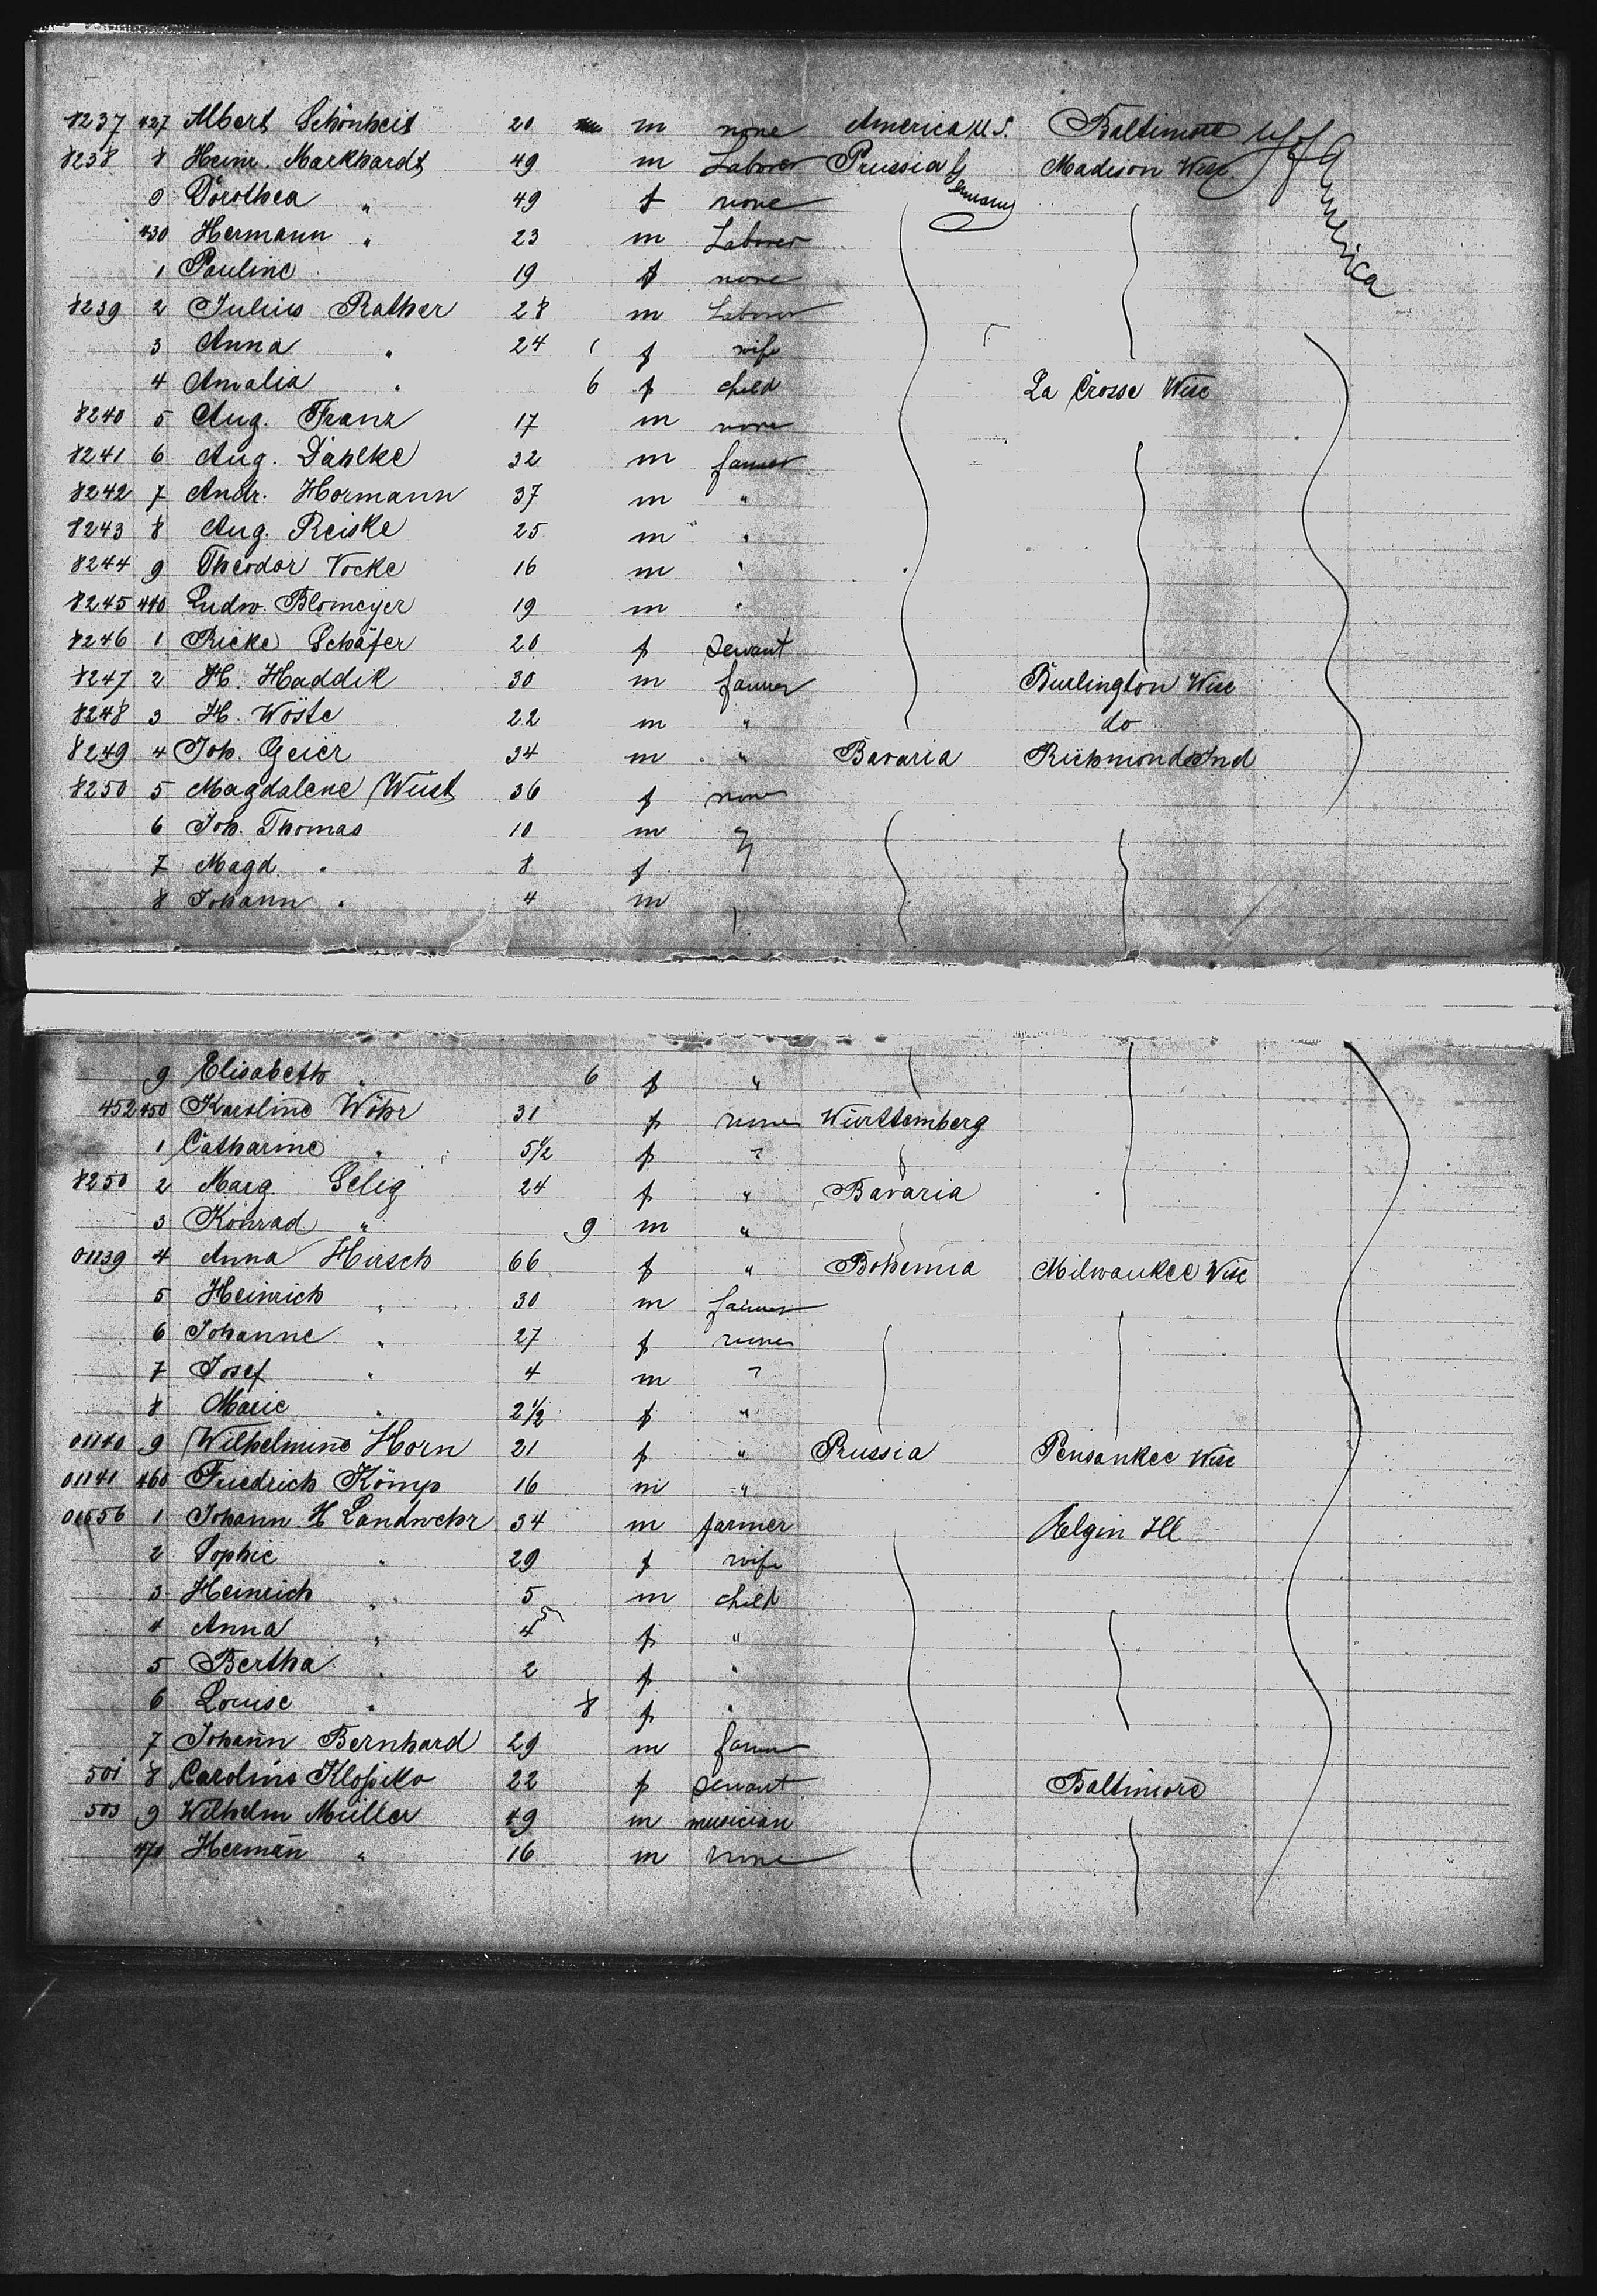 8237 427 Albert Schönheit 20 m none America U.S. Baltimore U S of America
8238 8 Heinr. Markhardt 49 m Laborer Prussia Germany Madison Wisc.
9 Dorothea " 49 f none
430 Hermann " 23 m Laborer
1 Pauline 19 f none
8239 2 Julius Rather 28 m Laborer
3 Anna " 24 f wife
4 Amalia " 6 f child La Crosse Wisc
8240 5 Aug. Franz 17 m none
8241 6 Aug. Dahlke 32 m farmer
8242 7 Andr. Hormann 37 m "
8243 8 Aug. Reiske 25 m "
8244 9 Theodor Vocke 16 m "
8245 440 Ludw. Blomeyer 19 m "
8246 1 Ricke Schäfer 20 f Servant
8247 2 H. Haddik 30 m farmer Burlington Wisc
8248 3 H. Wöste 22 m " do
8249 4 Joh. Geier 34 m " Bavaria Richmond Ind
8250 5 Magdalene Wüst 36 f none
6 Joh. Thomas 10 m "
7 Magd. " 8 f
8 Johann " 4 m
9 Elisabeth " 6 f "
452 450 Karoline Wöhr 31 f none Württemberg
1 Catharine " 5 1/2 f "
8250 2 Marg. Selig 24 f " Bavaria
3 Konrad " 9 m "
01139 4 Anna Hirsch 66 f " Bohemia Milwaukee Wisc
5 Heinrich " 30 m farmer
6 Johanne " 27 f none
7 Josef " 4 m "
8 Marie " 2 1/2 f "
01140 9 Wilhelmine Horn 21 f " Prussia Pensaukee Wisc
01141 460 Friedrich Kömp 16 m "
01556 1 Johann H Landwehr 34 m farmer Elgin Ill
2 Sophie " 29 f wife
3 Heinrich " 5 m child
4 Anna " 4 f "
5 Bertha " 2 f "
6 Louise " 8 f "
7 Johann Bernhard 29 m farmer
501 8 Caroline 22 f Servant Baltimore
503 9 Wilhelm Müller 49 m musician
470 Hermañ " 16 m none